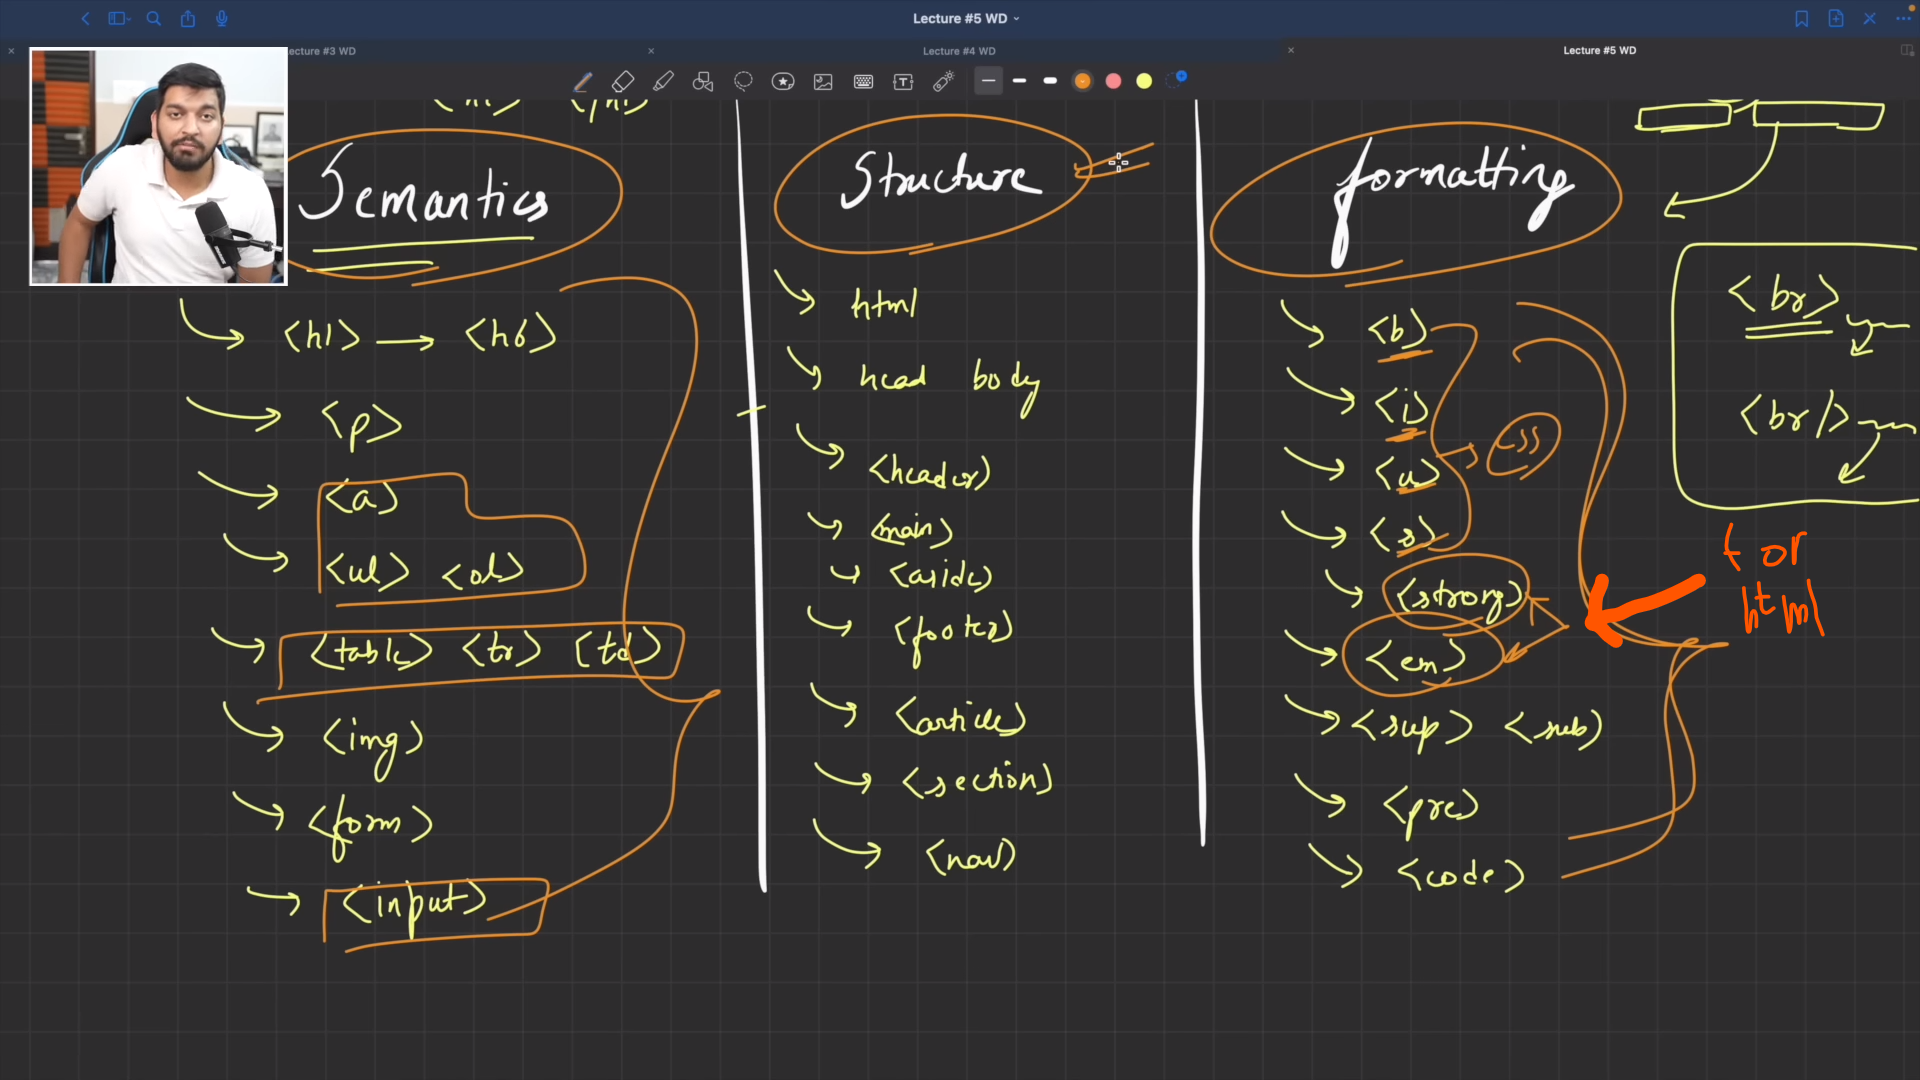 Lecture #5 WD
ecture #3 WD
Lecture #4 WD
Lecture #5 WD
Semantics
<h1> → <h6>
<p>
<a>
<ul> <ol>
<table> <tr> <td>
<img>
<form>
<input>
Structure
html
head body
<header>
<main>
<aside>
<footer>
<article>
<section>
<nav>
formatting
<b>
<i>
<u>
<s>
css
<strong>
<em>
<sup> <sub>
<pre>
<code>
<br>
<br/>
for
html